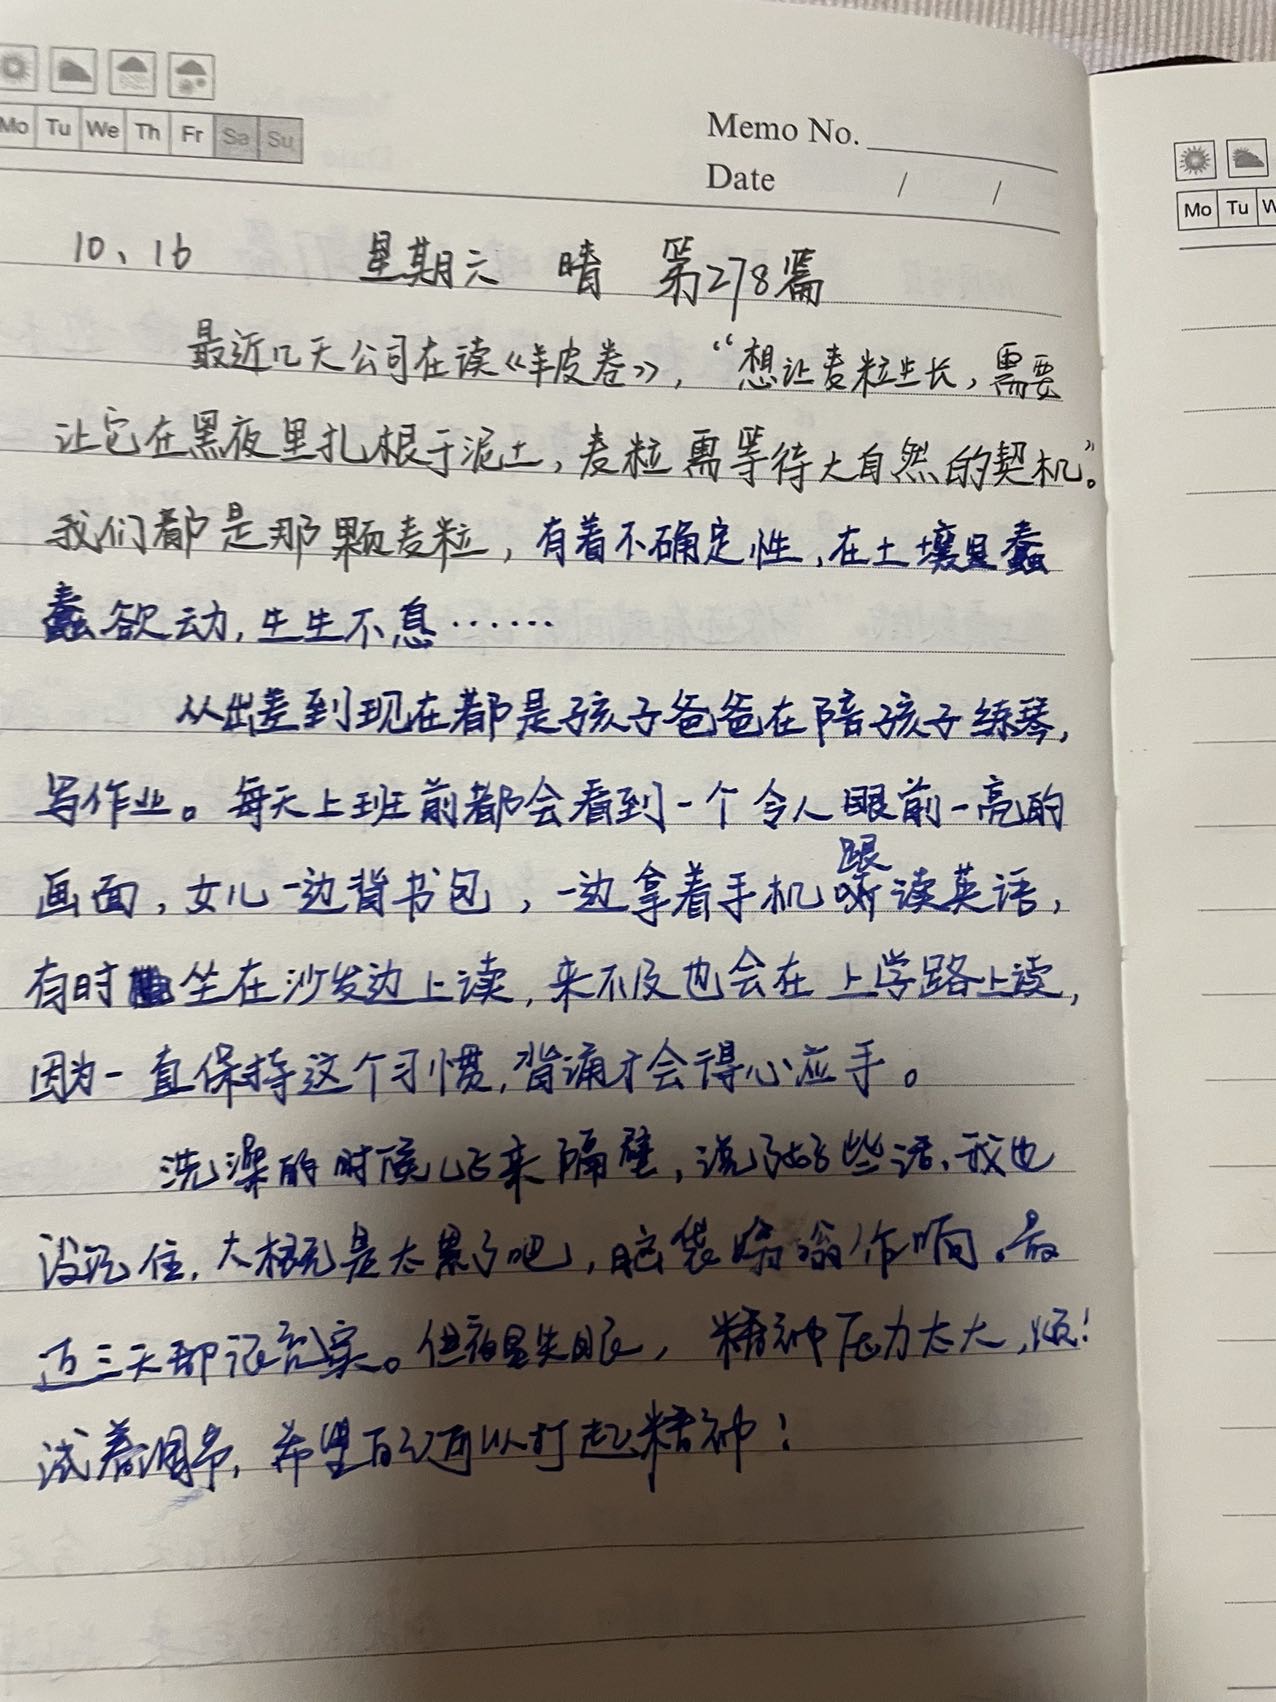 Mo Tu We Th Fr Sa Su
Memo No.
Date / /
10、16 星期六 晴 第278篇
最近几天公司在读《羊皮卷》，“想让麦粒生长，需要
让它在黑夜里扎根于泥土，麦粒需等待大自然的契机”。
我们都是那颗麦粒，有着不确定性，在土壤里蠢
蠢欲动，生生不息……
从出差到现在都是孩子爸爸在陪孩子练琴，
写作业。每天上班前都会看到一个令人眼前一亮的
画面，女儿一边背书包，一边拿着手机跟读英语，
有时坐在沙发边上读，来不及也会在上学路上读，
因为一直保持这个习惯，背诵才会得心应手。
洗澡的时候儿子来隔壁，说了好些话，我也
没记住，大概是太累了吧，脑袋嗡嗡作响。最
近三天都没充实。但初显失眠，精神压力太大，烦！
试着调节，希望自己可以打起精神！
Mo Tu W